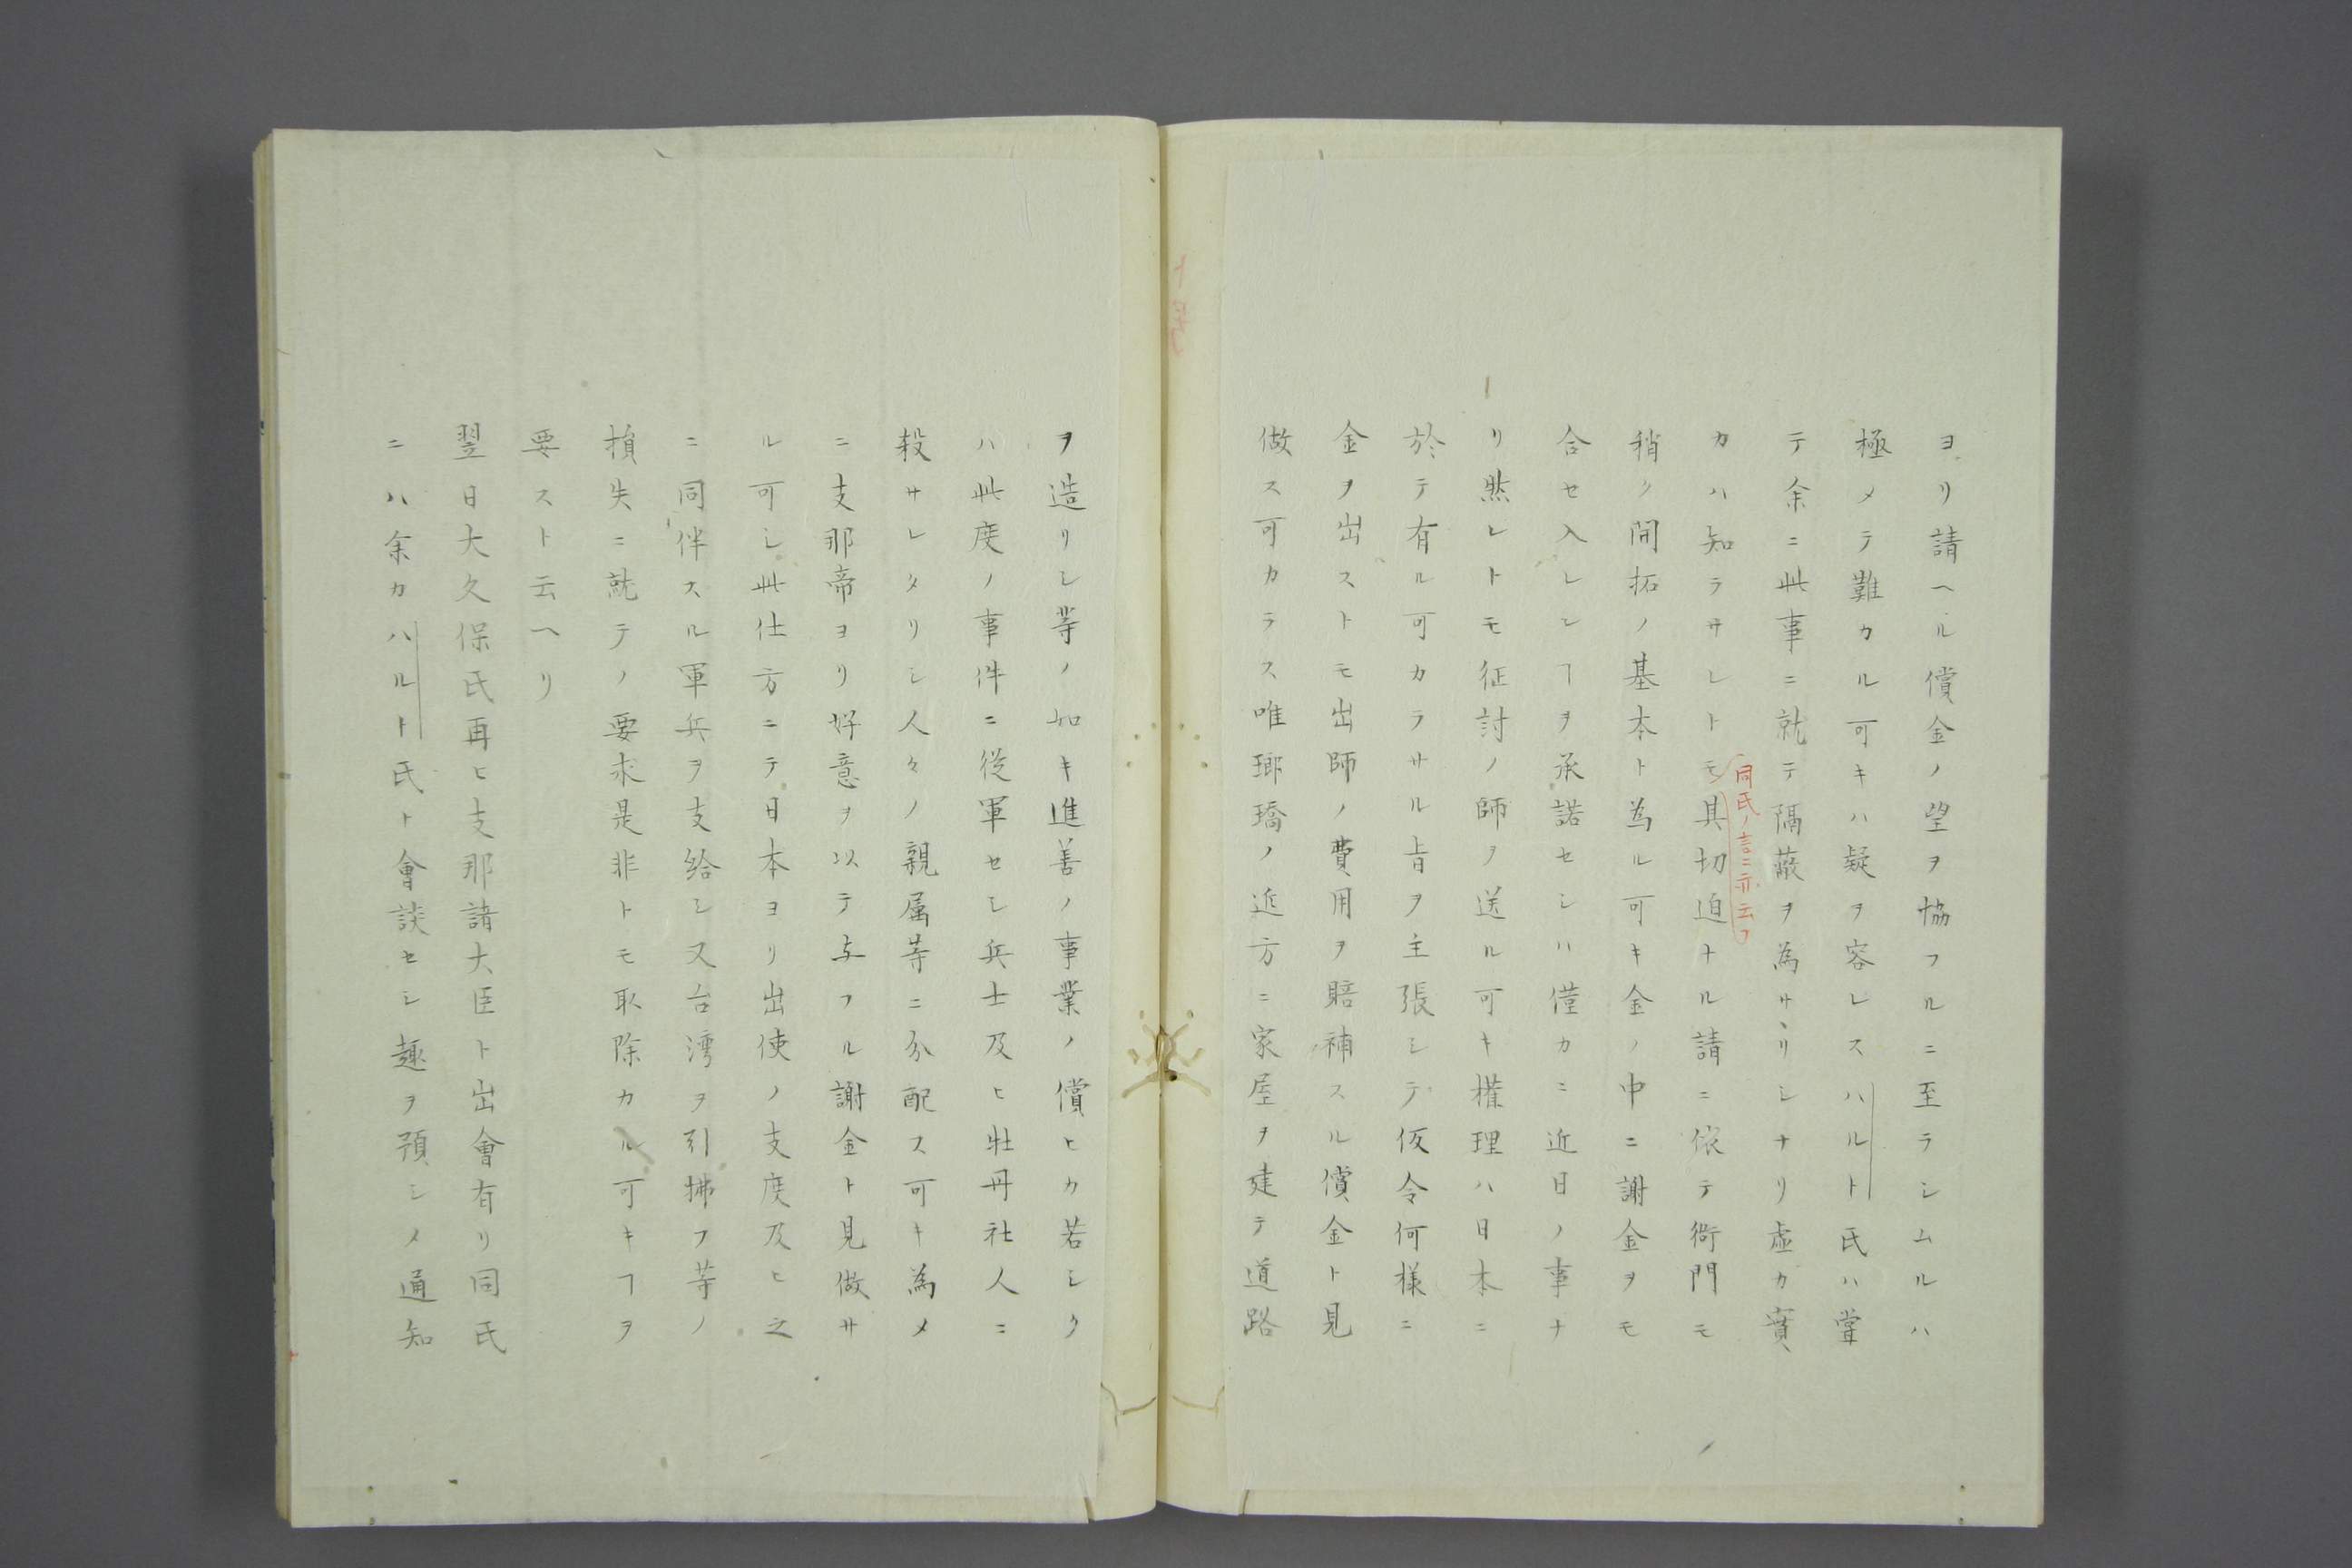 ヨリ請ヘル償金ノ望ヲ恊フルニ至ラシムルハ
極メテ難カル可キハ疑ヲ容レスハルト氏ハ甞
テ余ニ此事ニ就テ隔蔽ヲ為サヽリシナリ虚カ實
カハ知ラサレトモ其切迫ナル請ニ依テ衙門モ
同氏ノ言ニ亦云フ
稍ク開拓ノ基本ト為ル可キ金ノ中ニ謝金ヲモ
合セ入レシヿヲ承諾セシハ僅カニ近日ノ事ナ
リ然レトモ征討ノ師ヲ送ル可キ權理ハ日本ニ
於テ有ル可カラサル旨ヲ主張シテ仮令何様ニ
金ヲ出ストモ出師ノ費用ヲ賠補スル償金ト見
做ス可カラス唯瑯璚ノ近方ニ家屋ヲ建テ道路
ヲ造リシ等ノ如キ進善ノ事業ノ償ヒカ若シク
ハ此度ノ事件ニ從軍セシ兵士及ヒ牡丹社人ニ
殺サレタリシ人々ノ親属等ニ分配ス可キ為メ
ニ支那帝ヨリ好意ヲ以テ与フル謝金ト見做サ
ル可シ此仕方ニテ日本ヨリ出使ノ支度及ヒ之
ニ同伴スル軍兵ヲ支給シ又台湾ヲ引拂フ等ノ
損失ニ就テノ要求是非トモ取除カル可キヿヲ
要スト云ヘリ
翌日大久保氏再ヒ支那諸大臣ト出會有リ同氏
ニハ余カハルト氏ト會談セシ趣ヲ預シメ通知